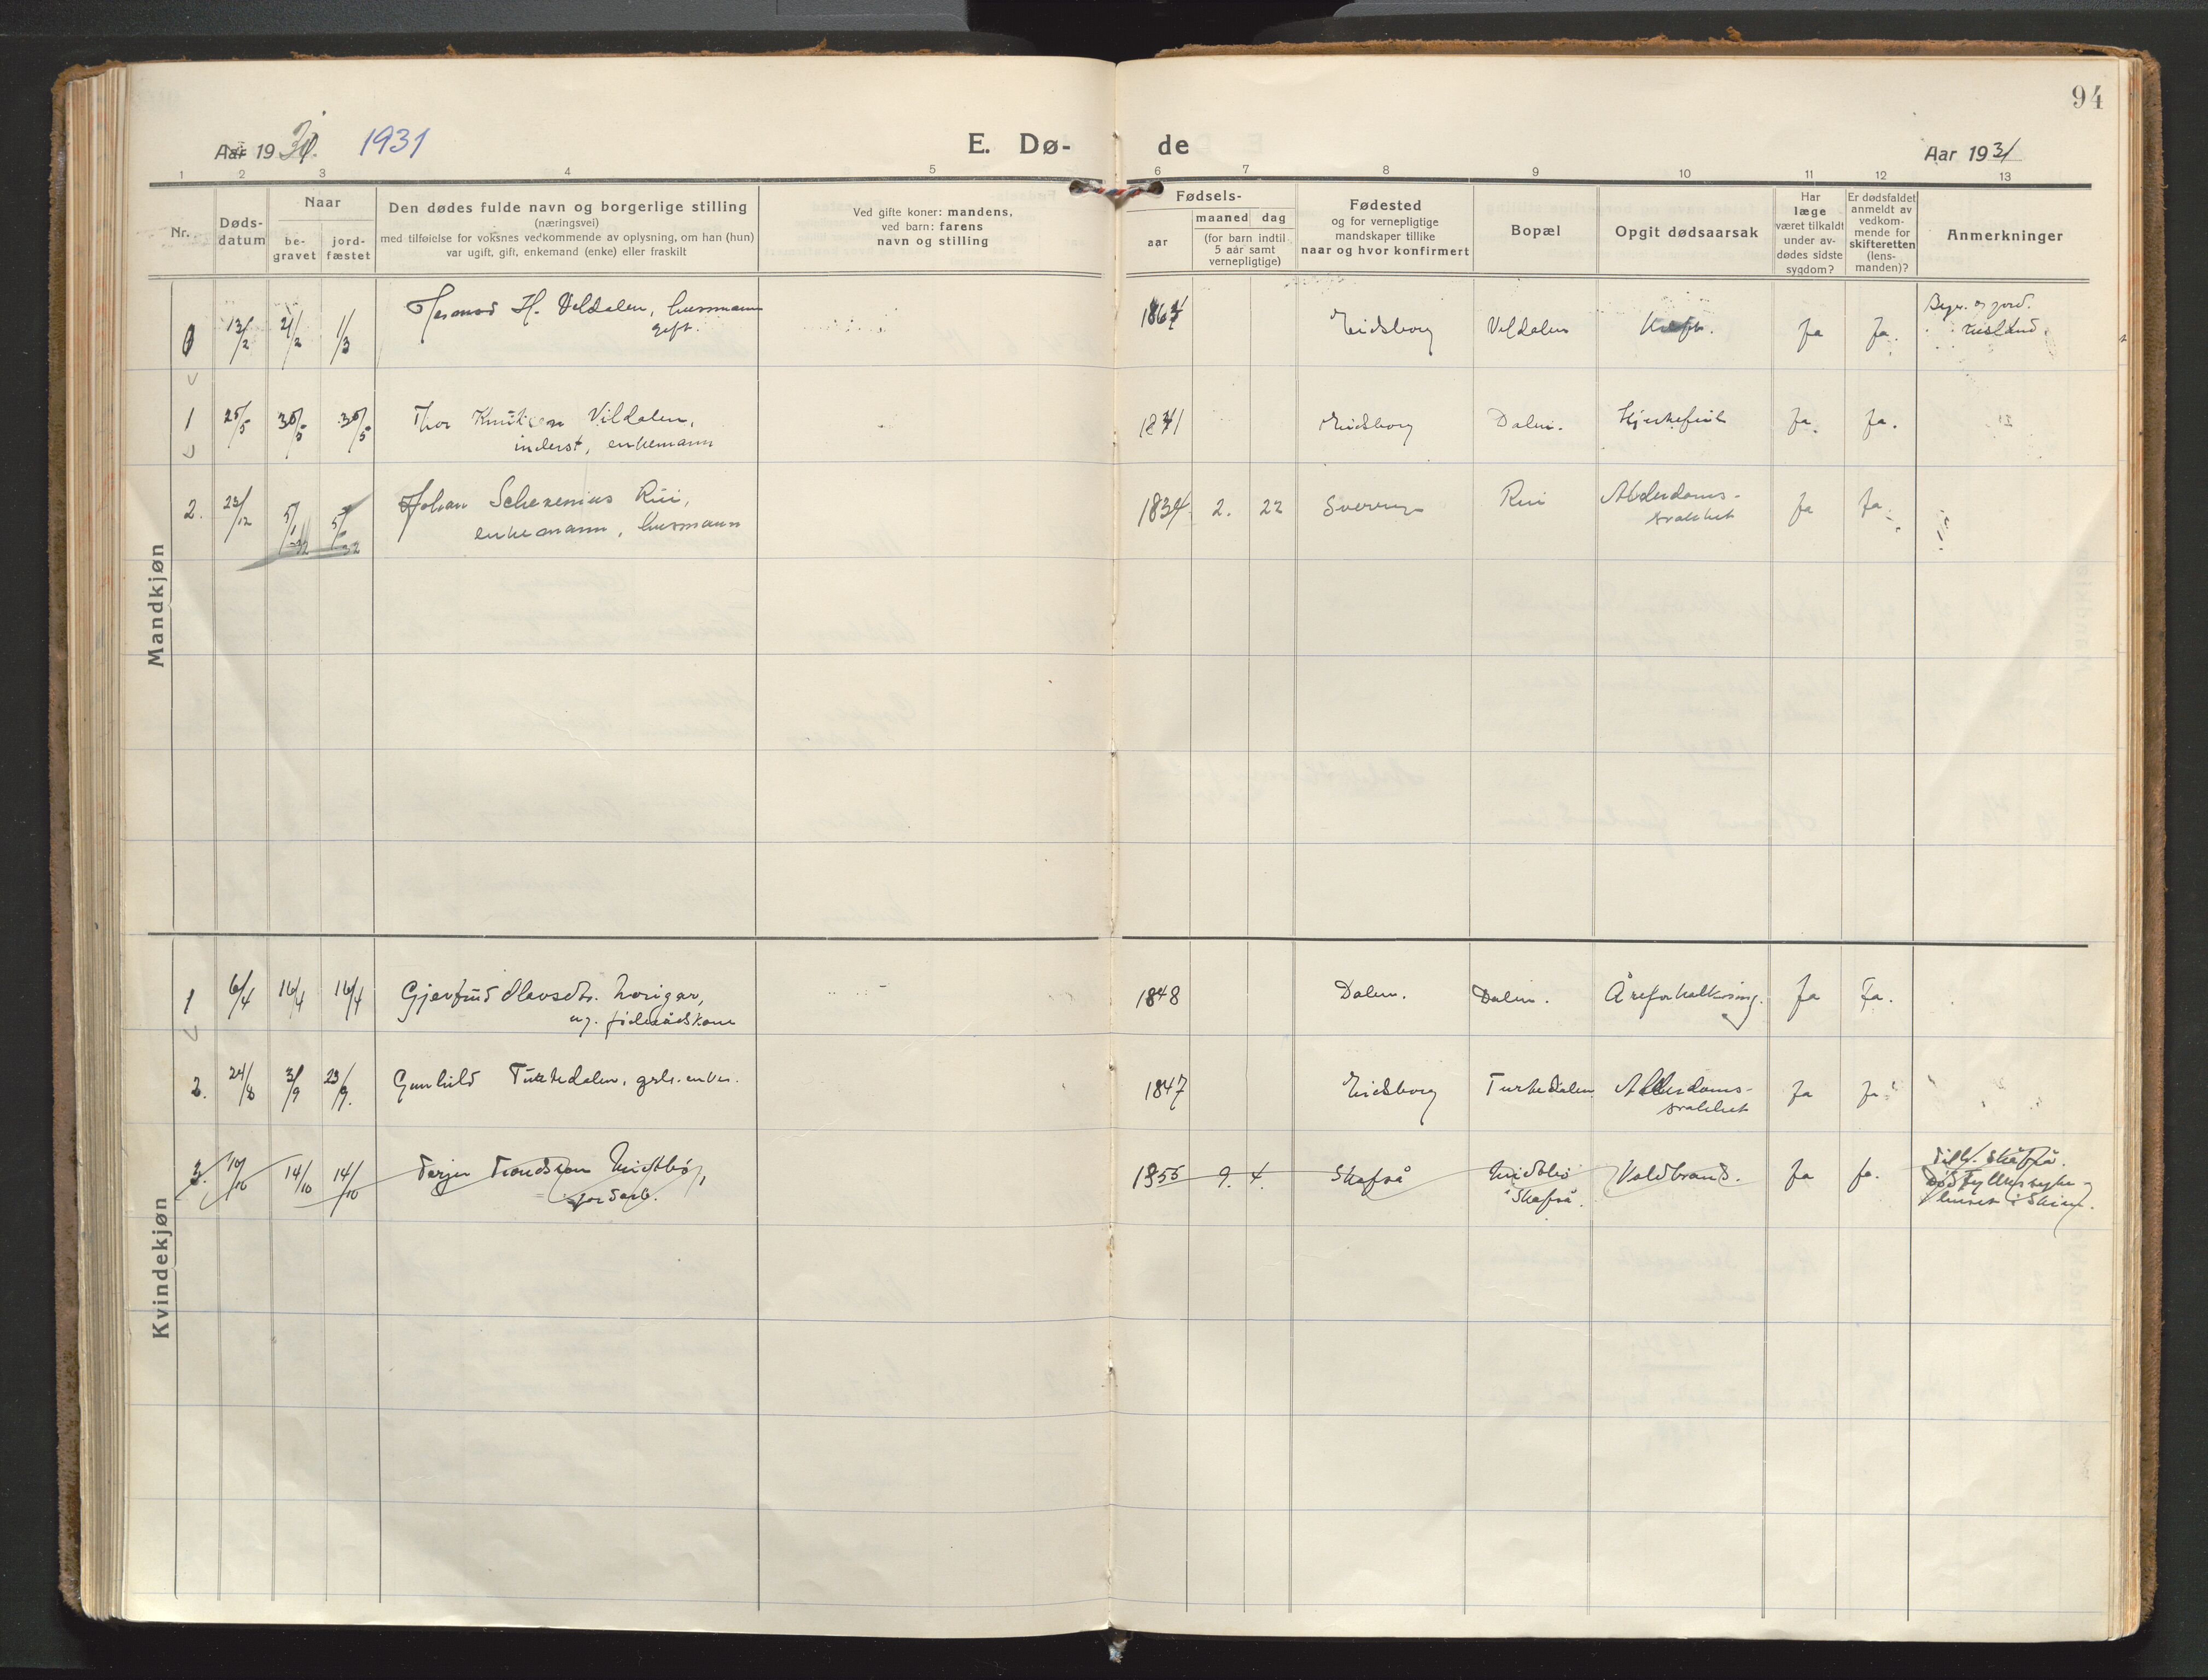 94
Aar 1931. 1931
E. Dø-
de
Aar 1931
1 2 3 4 5 6 7 8 9 10 11 12 13
Nr.
Døds-
datum
Naar
be-
gravet
jord-
fæstet
Den dødes fulde navn og borgerlige stilling
(næringsvei)
med tilføielse for voksnes vedkommende av oplysning, om han (hun)
var ugift, gift, enkemand (enke) eller fraskilt
Ved gifte koner: mandens,
ved barn: farens
navn og stilling
Fødsels-
aar
maaned dag
(for barn indtil
5 aar samt
vernepligtige)
Fødested
og for vernepligtige
mandskaper tillike
naar og hvor konfirmert
Bopæl
Opgit dødsaarsak
Har
læge
været tilkaldt
under av-
dødes sidste
sygdom?
Er dødsfaldet
anmeldt av
vedkom-
mende for
skifteretten
(lens-
manden)?
Anmerkninger
Mandkjøn
13/2 21/2 1/3 H. Veldalen, husmann
gift.
1867 Eidsborg Veldalen Kreft. Ja Ja. Begr. og jord.
1 25/5 30/5 30/5 Thor Knutsen Vildalen,
inderst, enkemann
1841 Eidsborg Dalen. Hjertefeil Ja. Ja.
2. 23/12 5/1-32 5/1-32 Johan Schexenius Rui,
enkemann, husmann
1834 2. 22 Sverige Rui Alderdoms-
svakhet
Ja Ja.
Kvindekjøn
1 6/4 16/4 16/4 Gjertrud Olavsdtr.
ug. føderådskone
1848 Dalen. Dalen. Åreforkalkning. Ja Ja.
2. 24/8 3/9 23/9. Gunhild Turtedalen, grd. enke.
1847 Eidsborg Turtedalen Alderdoms-
svakhet
Ja Ja
3. 10/10 14/10 14/10 Terjer Trondsson Midtbø,
jordarb.
1855 9. 4. Skafså Midtbø
i Skafså.
Valdbrand. Ja Ja. Tilh. Skafså.
Død Fylkessyke-
huset i Skien.